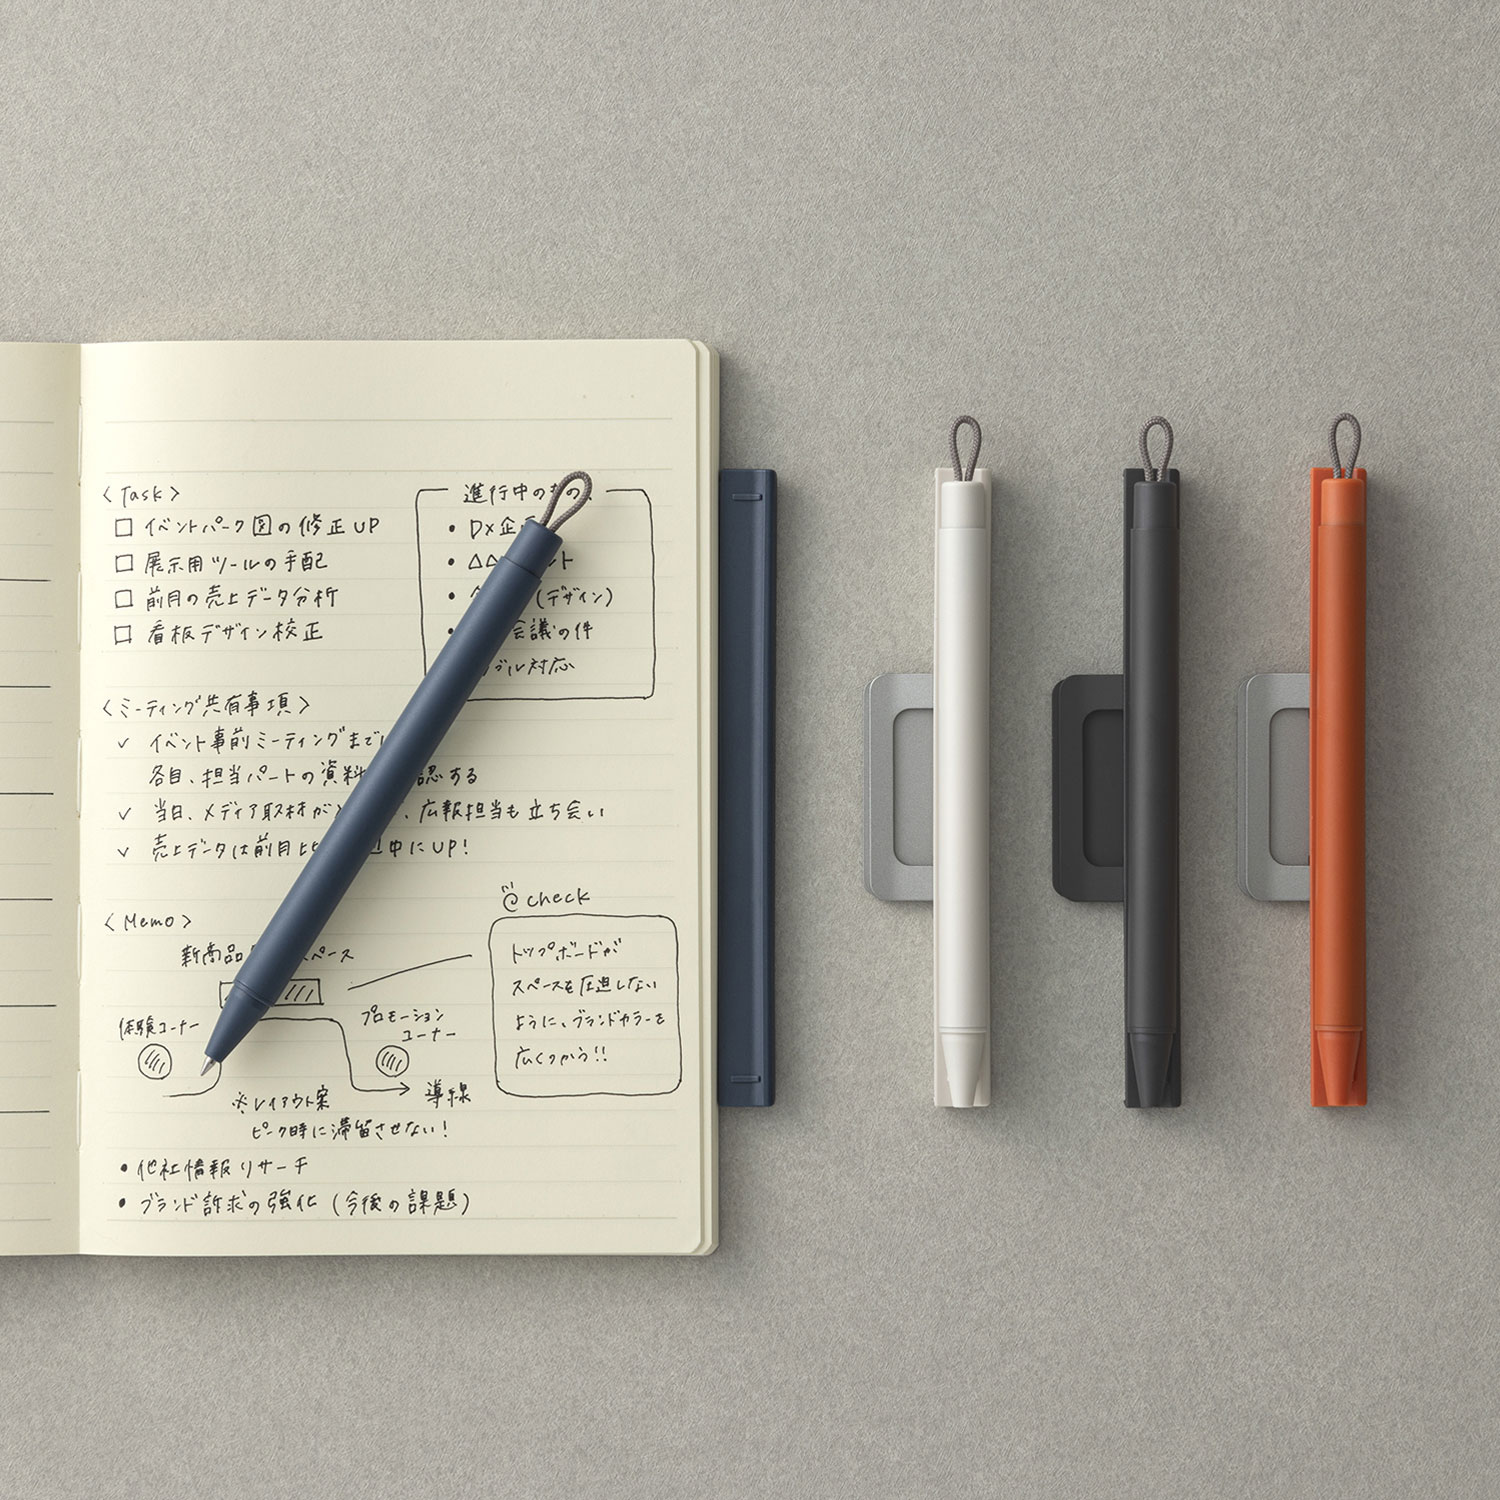 < Task >
□ イベントパーク図の修正UP
□ 展示用ツールの手配
□ 前月の売上データ分析
□ 看板デザイン校正
進行中のもの
• DX企
• △△ ント
• (デザイン)
• 会議の件
ブル対応
< ミーティング共有事項 >
✓ イベント事前ミーティングまでに
各自、担当パートの資料 認する
✓ 当日、メディア取材が 、広報担当も立ち会い
✓ 売上データは前月比 中にUP!
< Memo >
新商品 スペース
体験コーナー
プロモーション
コーナー
導線
※レイアウト案
ピーク時に滞留させない!
check
トップボードが
スペースを圧迫しない
ように、ブランドカラーを
広くつかう!!
• 他社情報リサーチ
• ブランド訴求の強化 (今後の課題)